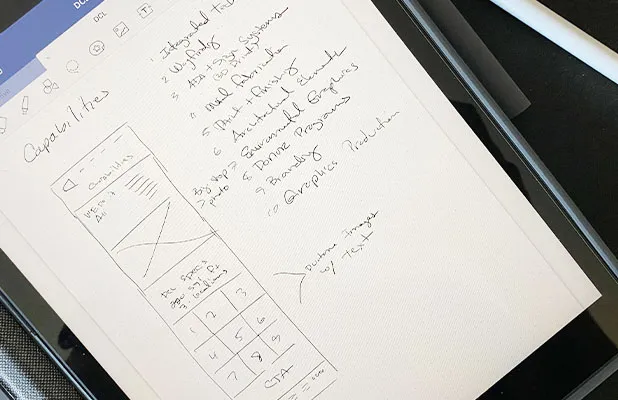 DCL
Capabilities
1 Integrated
2 Wayfinding
3 ADA + Sign Systems
4 Metal Fabrication
5 Print + Finishing
6 Architectural Elements
7 Environmental Graphics
8 Donor Programs
9 Branding
10 Graphics Production
Big top
photo
Duotone Images
w/ Text
Capabilities
DCL Specs
1 2 3
4 5 6
7 8 9
CTA